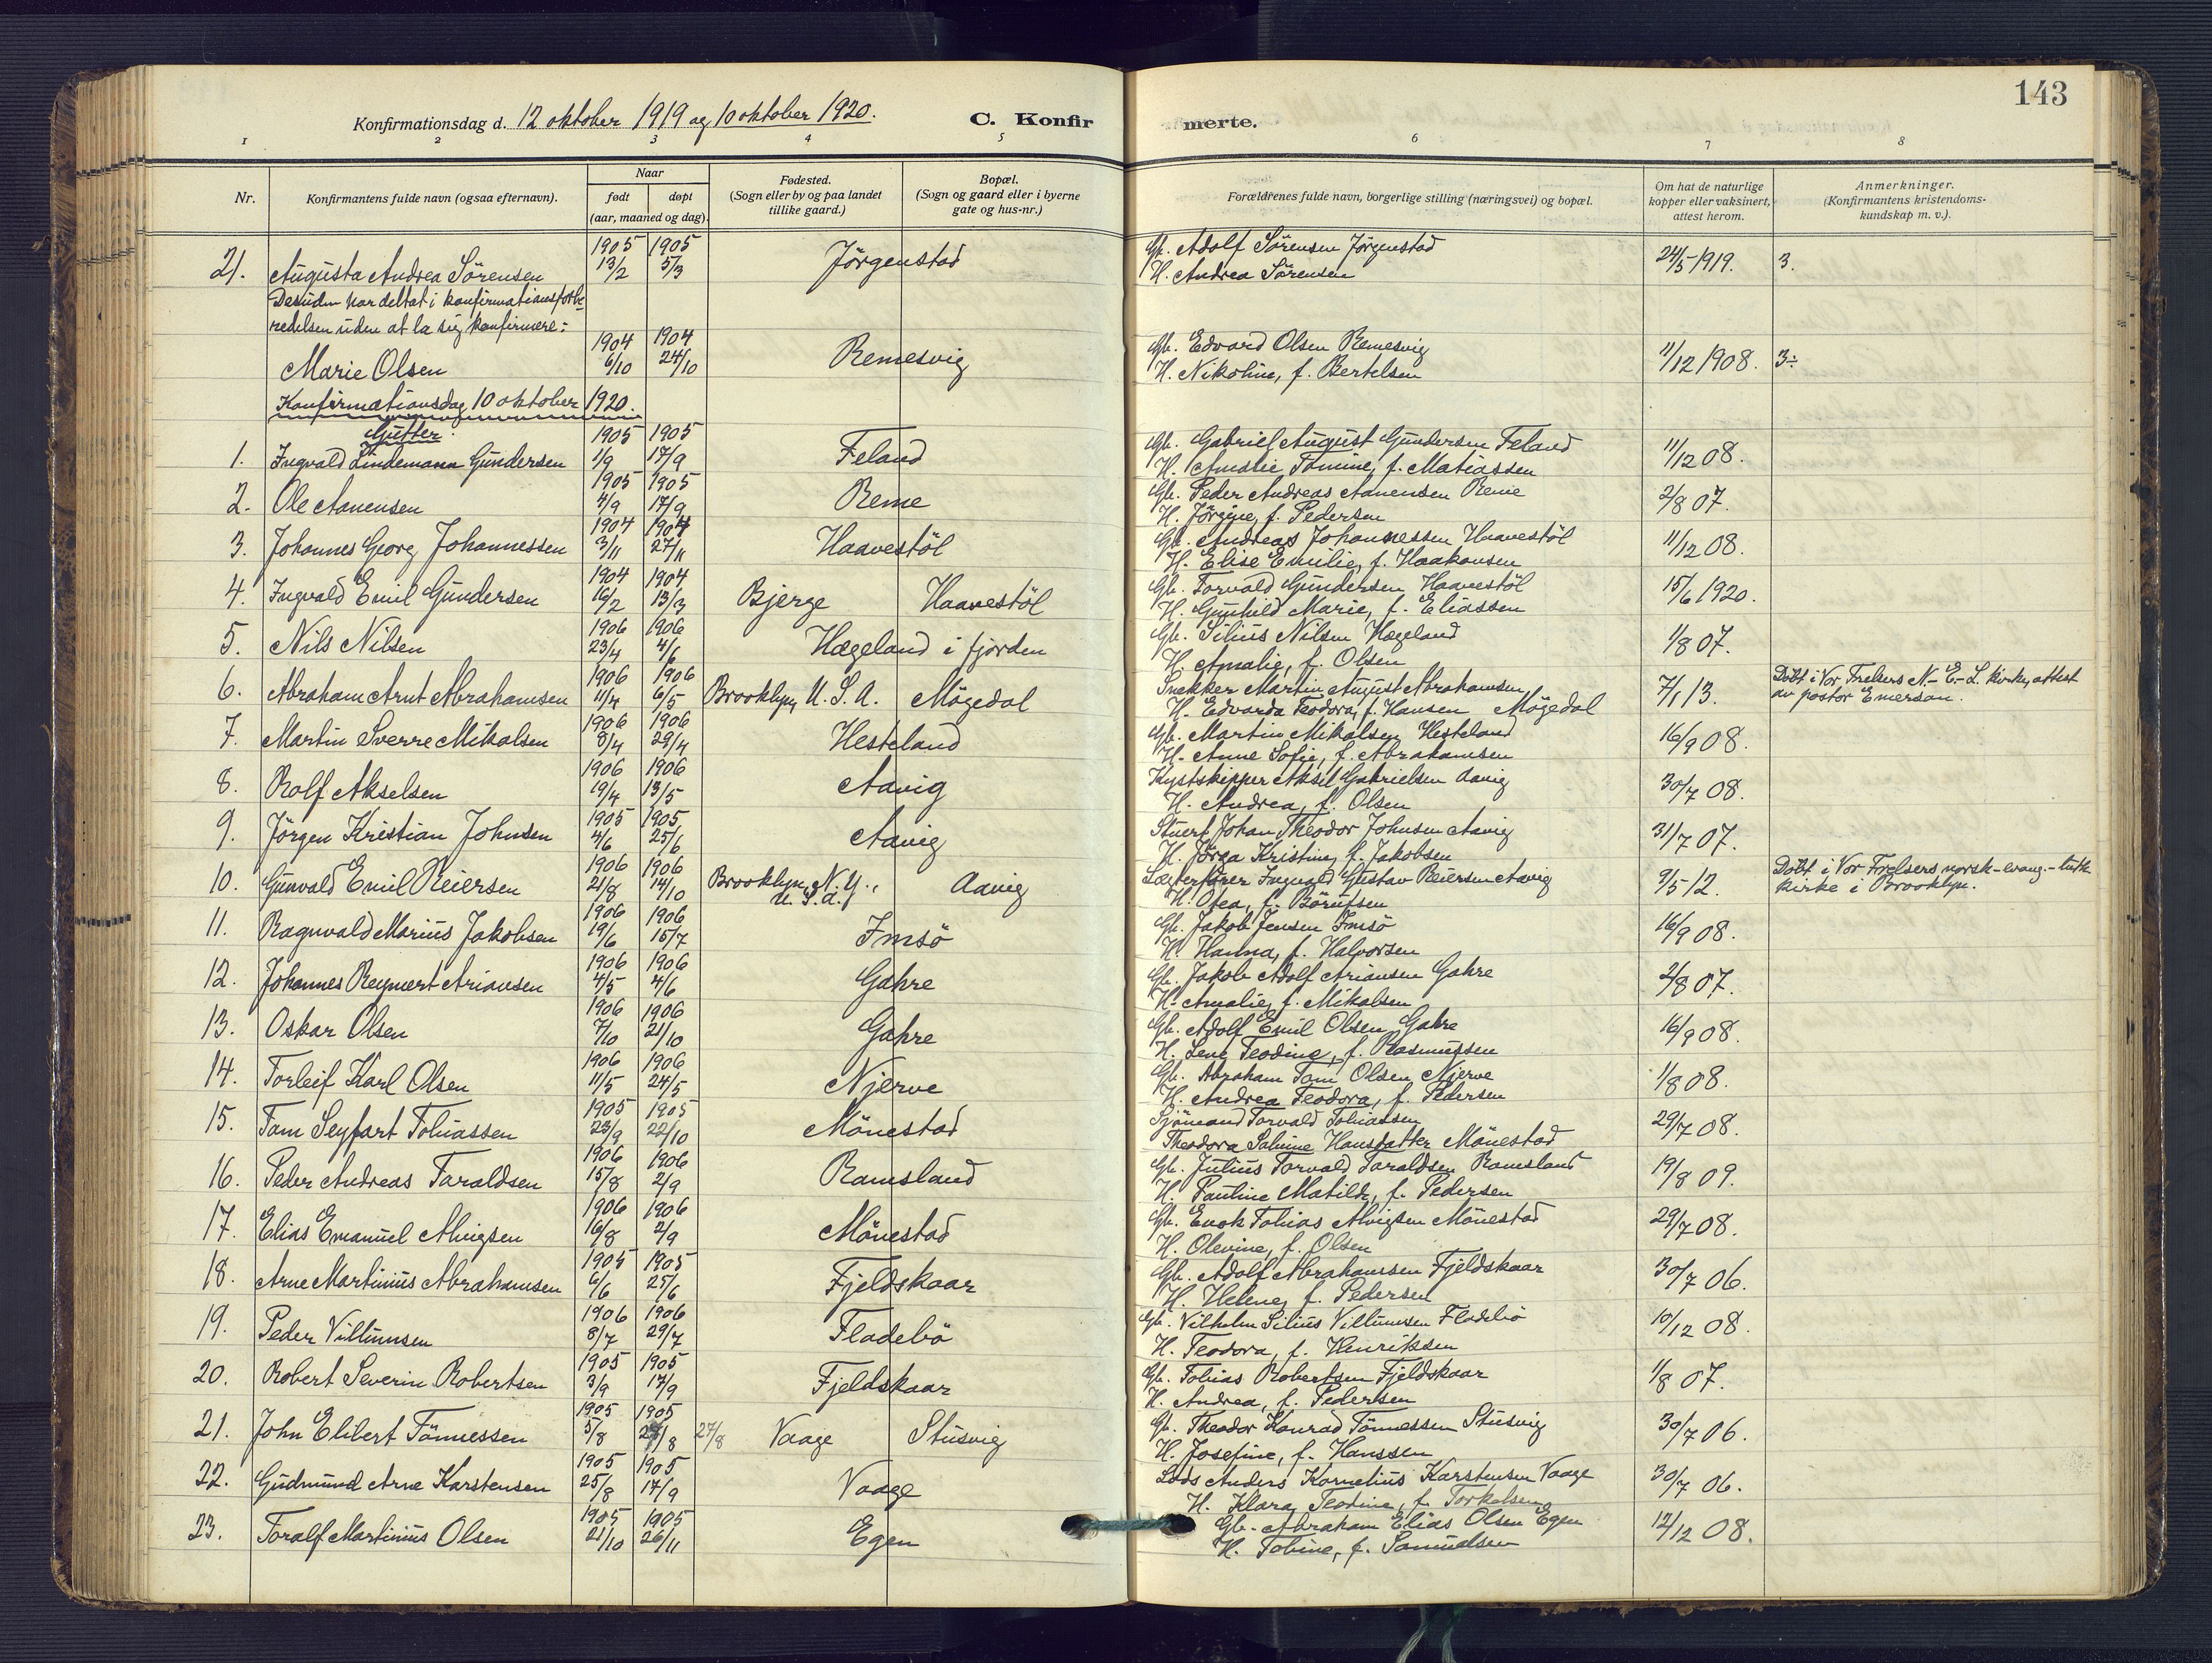 143
Konfirmationsdag d. 12 oktober 1919 og 10 oktober 1920. C. Konfirmerte.
1 2 3 4 5 6 7 8
Nr. Konfirmantens fulde navn (ogsaa efternavn). Naar født døpt (aar, maaned og dag). Fødested. (Sogn eller by og paa landet tillike gaard.) Bopæl. (Sogn og gaard eller i byerne gate og hus-nr.) Forældrenes fulde navn, borgerlige stilling (næringsvei) og bopæl. Om hat de naturlige kopper eller vaksinert, attest herom. Anmerkninger. (Konfirmantens kristendomskundskap m. v.).
21. Augusta Andrea Sörensen 1905 13/2 1905 5/3 Jörgenstad Gb. Adolf Sörensen Jörgenstad 24/5 1919. 3.
H. Andrea Sörensen
Desuden har deltat i konfirmationsforbe-
redelsen uden at la sig konfirmere:
Marie Olsen 1904 6/10 1904 24/10 Remesvig Gb. Edvard Olsen Remesvig 11/12 1908. 3÷
H. Nikoline, f. Bertelsen
Konfirmationsdag 10 oktober 1920.
Gutter.
1. Ingvald Lindemann Gundersen 1905 1/9 1905 17/9 Feland Gb. Gabriel August Gundersen Feland 11/12 08.
H. Amalie Tomine, f. Matiassen
2. Ole Aanensen 1905 4/9 1905 17/9 Reme Gb. Peder Andreas Aanensen Reme 2/8 07.
H. Jörgine, f. Pedersen
3. Johannes Georg Johannessen 1904 3/11 1904 27/11 Haavestöl Gb. Andreas Johannessen Haavestöl 11/12 08.
H. Elise Emilie, f. Haakonsen
4. Ingvald Emil Gundersen 1904 16/2 1904 13/3 Bjerge Haavestöl Gb. Torvald Gundersen Haavestöl 15/6 1920.
H. Gunhild Marie, f. Eliassen
5. Nils Nilsen 1906 23/4 1906 4/6 Hægeland i fjorden Gb. Silius Nilsen Hægeland 1/8 07.
H. Amalie, f. Olsen
6. Abraham Arnt Abrahamsen 1906 11/4 1906 6/5 Brooklyn, U. S. A. Mögedal Snekker Martin August Abrahamsen 7/1 13. Döbt i Vor Frelsers N.-E.-L. kirke, attest
H. Edvarda Teodora, f. Hansen Mögedal av pastor Emerson.
7. Martin Sverre Mikalsen 1906 8/4 1906 29/4 Hesteland Gb. Martin Mikalsen Hesteland 16/9 08.
H. Anne Sofie, f. Abrahamsen
8. Rolf Akselsen 1906 19/4 1906 13/5 Aavig Kystskipper Aksel Gabrielsen Aavig 30/7 08.
H. Andrea, f. Olsen
9. Jörgen Kristian Johnsen 1905 4/6 1905 25/6 Aavig Stuert Johan Theodor Johnsen Aavig 31/7 07.
H. Jörga Kristine, f. Jakobsen
10. Gunvald Emil Reiersen 1906 21/8 1906 14/10 Brooklyn, N. Y., U. S. A. Aavig Lægterfører Ingvald Gustav Reiersen Aavig 9/5 12. Döbt i Vor Frelsers norsk-evang.-luth.
H. Otea, f. Börufsen kirke i Brooklyn.
11. Ragnvald Marius Jakobsen 1906 19/6 1906 15/7 Imsö Gb. Jakob Jensen Imsö 16/9 08.
H. Hanna, f. Halvorsen
12. Johannes Reynert Ariansen 1906 4/5 1906 4/6 Gahre Gb. Jakob Adolf Ariansen Gahre 2/8 07.
H. Amalie, f. Mikalsen
13. Oskar Olsen 1906 7/10 1906 21/10 Gahre Gb. Adolf Emil Olsen Gahre 16/9 08.
H. Lene Teodine, f. Rasmussen
14. Torleif Karl Olsen 1906 11/5 1906 24/5 Njerve Gb. Abraham Tom Olsen Njerve 1/8 08.
H. Andrea Teodora, f. Pedersen
15. Tom Seyfart Tobiassen 1905 23/9 1905 22/10 Mönestad Sjömand Torvald Tobiassen 29/7 08.
Theodora Sabine Hansdatter Mönestad
16. Peder Andreas Taraldsen 1906 15/8 1906 2/9 Ramsland Gb. Julius Torvald Taraldsen Ramsland 19/8 09.
H. Pauline Matilde, f. Pedersen
17. Elias Emanuel Alvigsen 1906 16/8 1906 2/9 Mönestad Gb. Enok Tobias Alvigsen Mönestad 29/7 08.
H. Olevine, f. Olsen
18. Arne Martinius Abrahamsen 1905 6/6 1905 25/6 Fjeldskaar Gb. Adolf Abrahamsen Fjeldskaar 30/7 06.
H. Helene, f. Pedersen
19. Peder Villumsen 1906 8/7 1906 29/7 Fladebö Gb. Vilhelm Silius Villumsen Fladebö 10/12 08.
H. Teodora, f. Henriksen
20. Robert Severin Robertsen 1905 3/9 1905 17/9 Fjeldskaar Gb. Tobias Robertsen Fjeldskaar 1/8 07.
H. Andrea, f. Pedersen
21. John Elibert Tönnessen 1905 5/8 1905 27/8 27/8 Vaage Stusvig Gb. Theodor Konrad Tönnessen Stusvig 30/7 06.
H. Josefine, f. Hanssen
22. Gudmund Arne Karstensen 1905 25/8 1905 17/9 Vaage Lods Anders Kornelius Karstensen Vaage 30/7 06.
H. Klara Teodine, f. Torkelsen
23. Toralf Martinius Olsen 1905 21/10 1905 26/11 Egen Gb. Abraham Elias Olsen Egen 12/12 08.
H. Tobine, f. Samuelsen